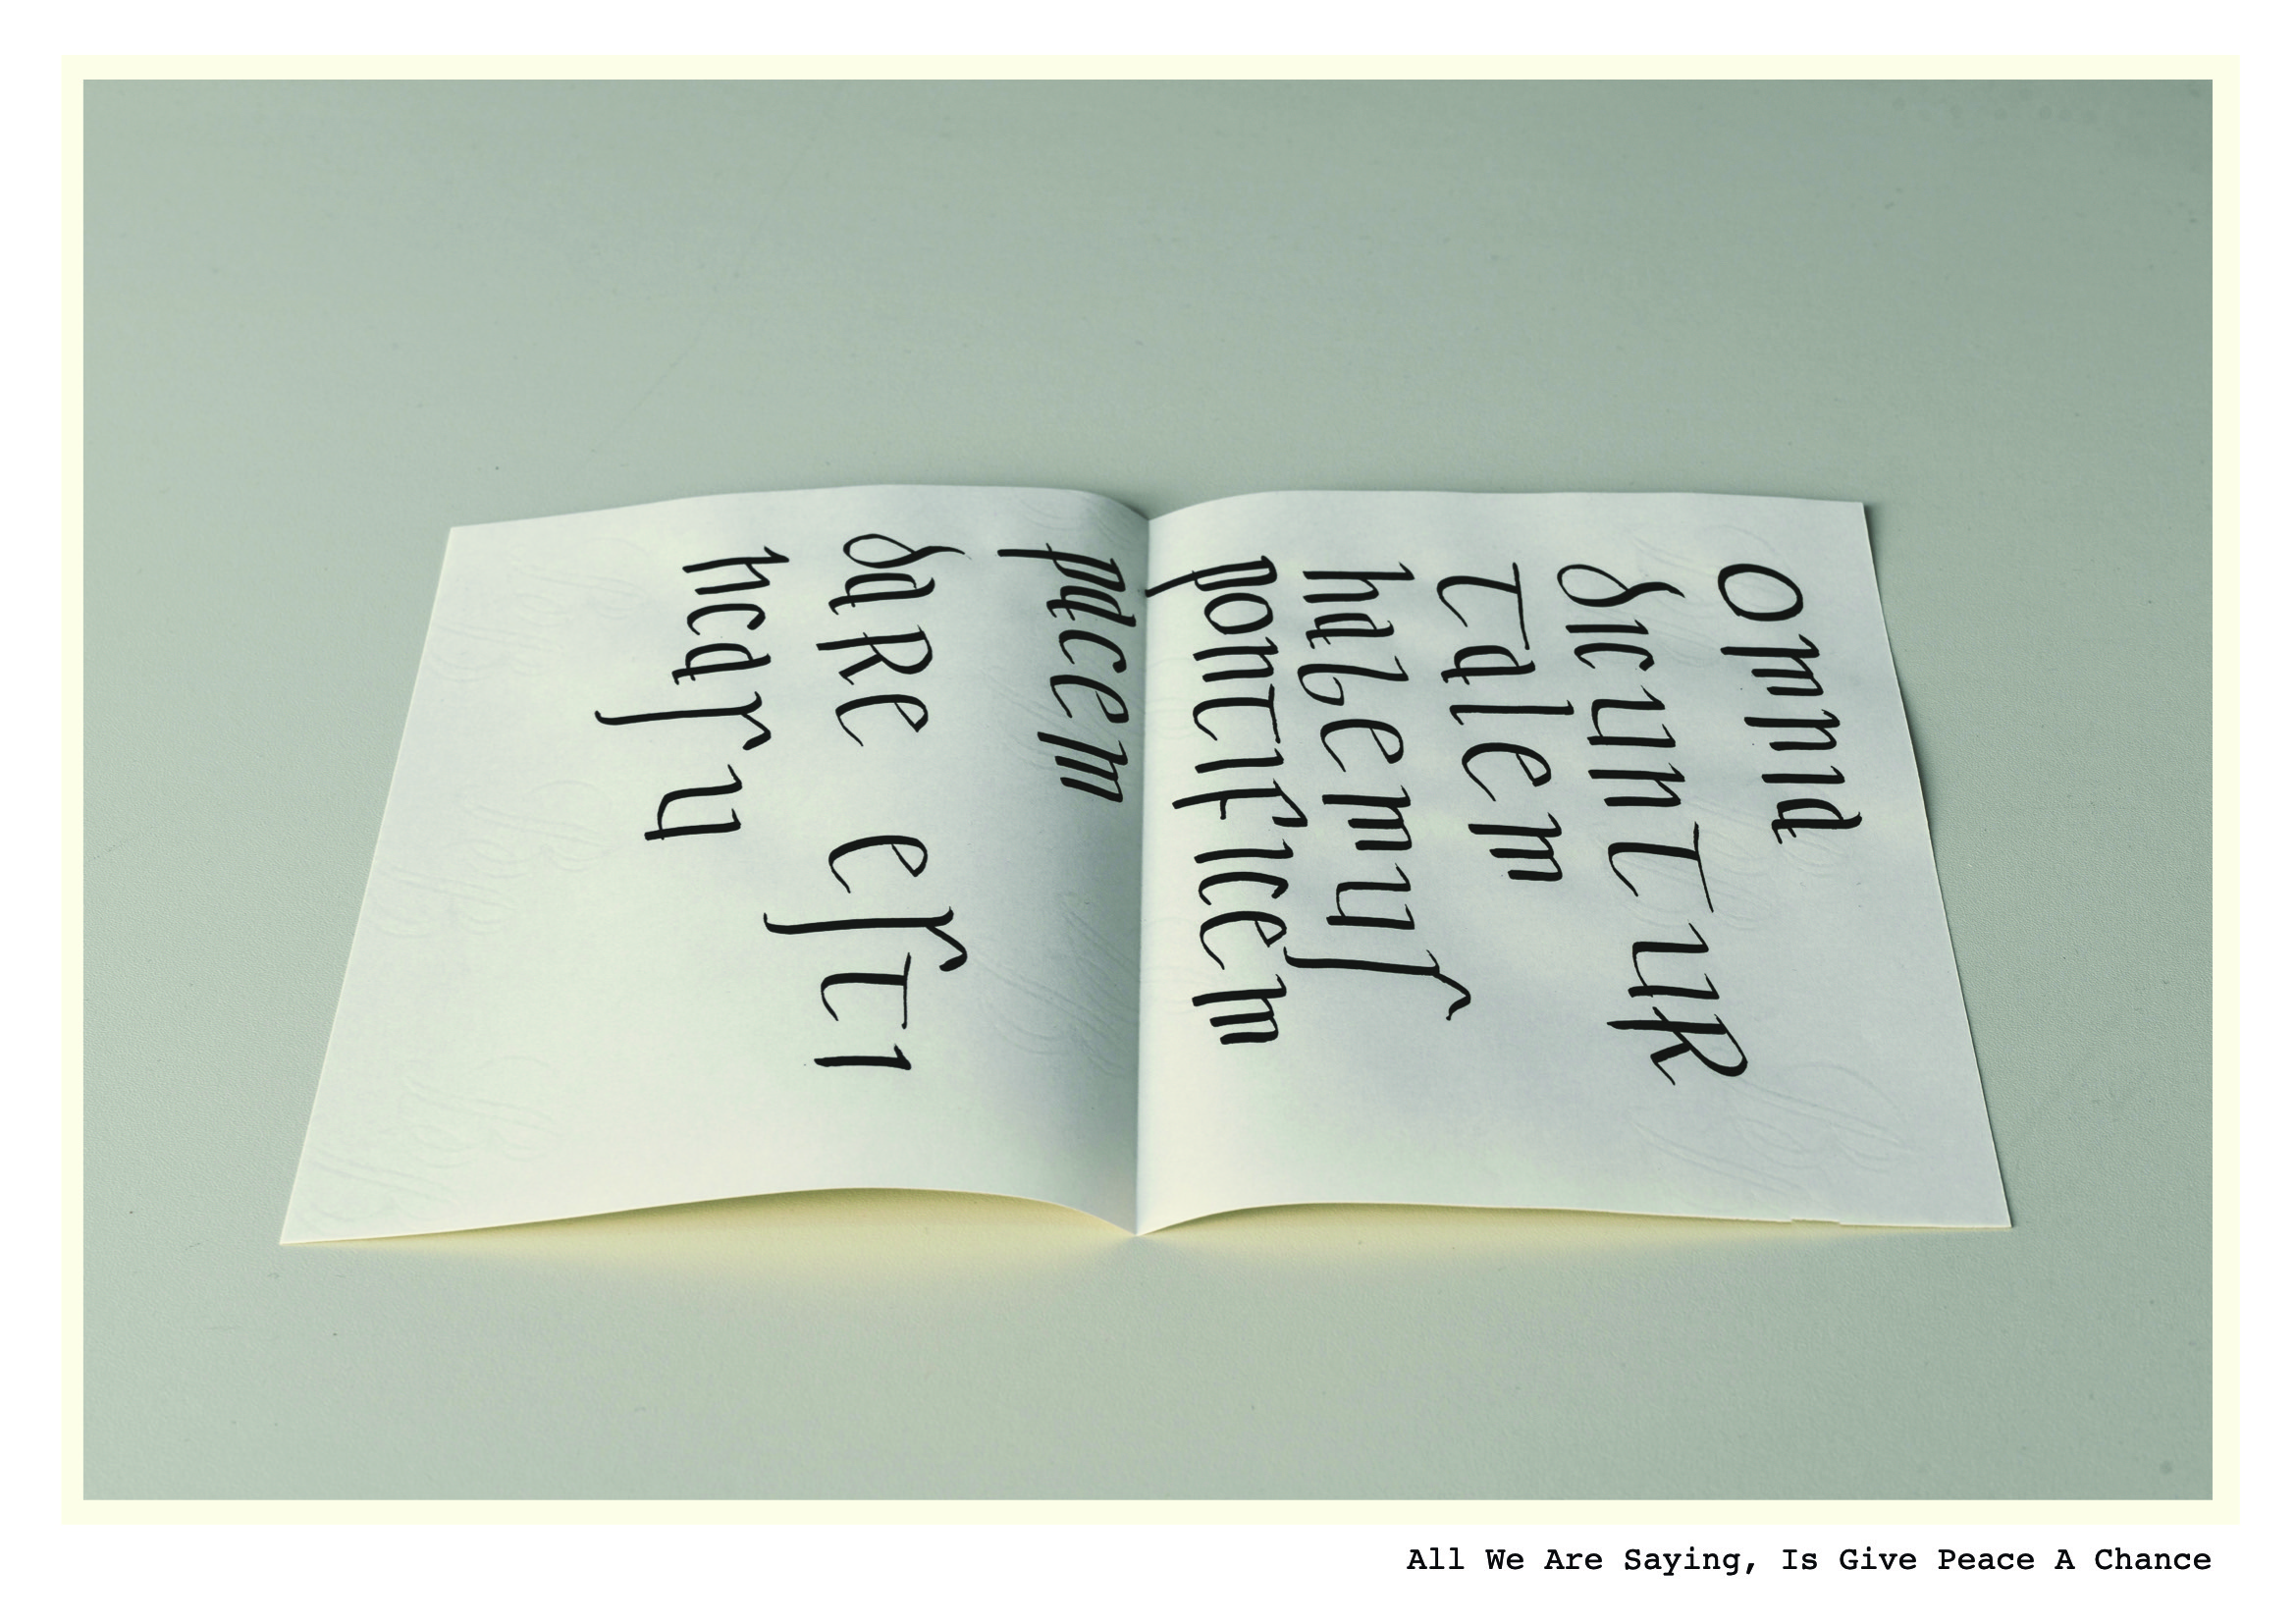 omnia
dicuntur
talem
habemuſ
pontificem
pacem
dare eſti
hcaſu
All We Are Saying, Is Give Peace A Chance